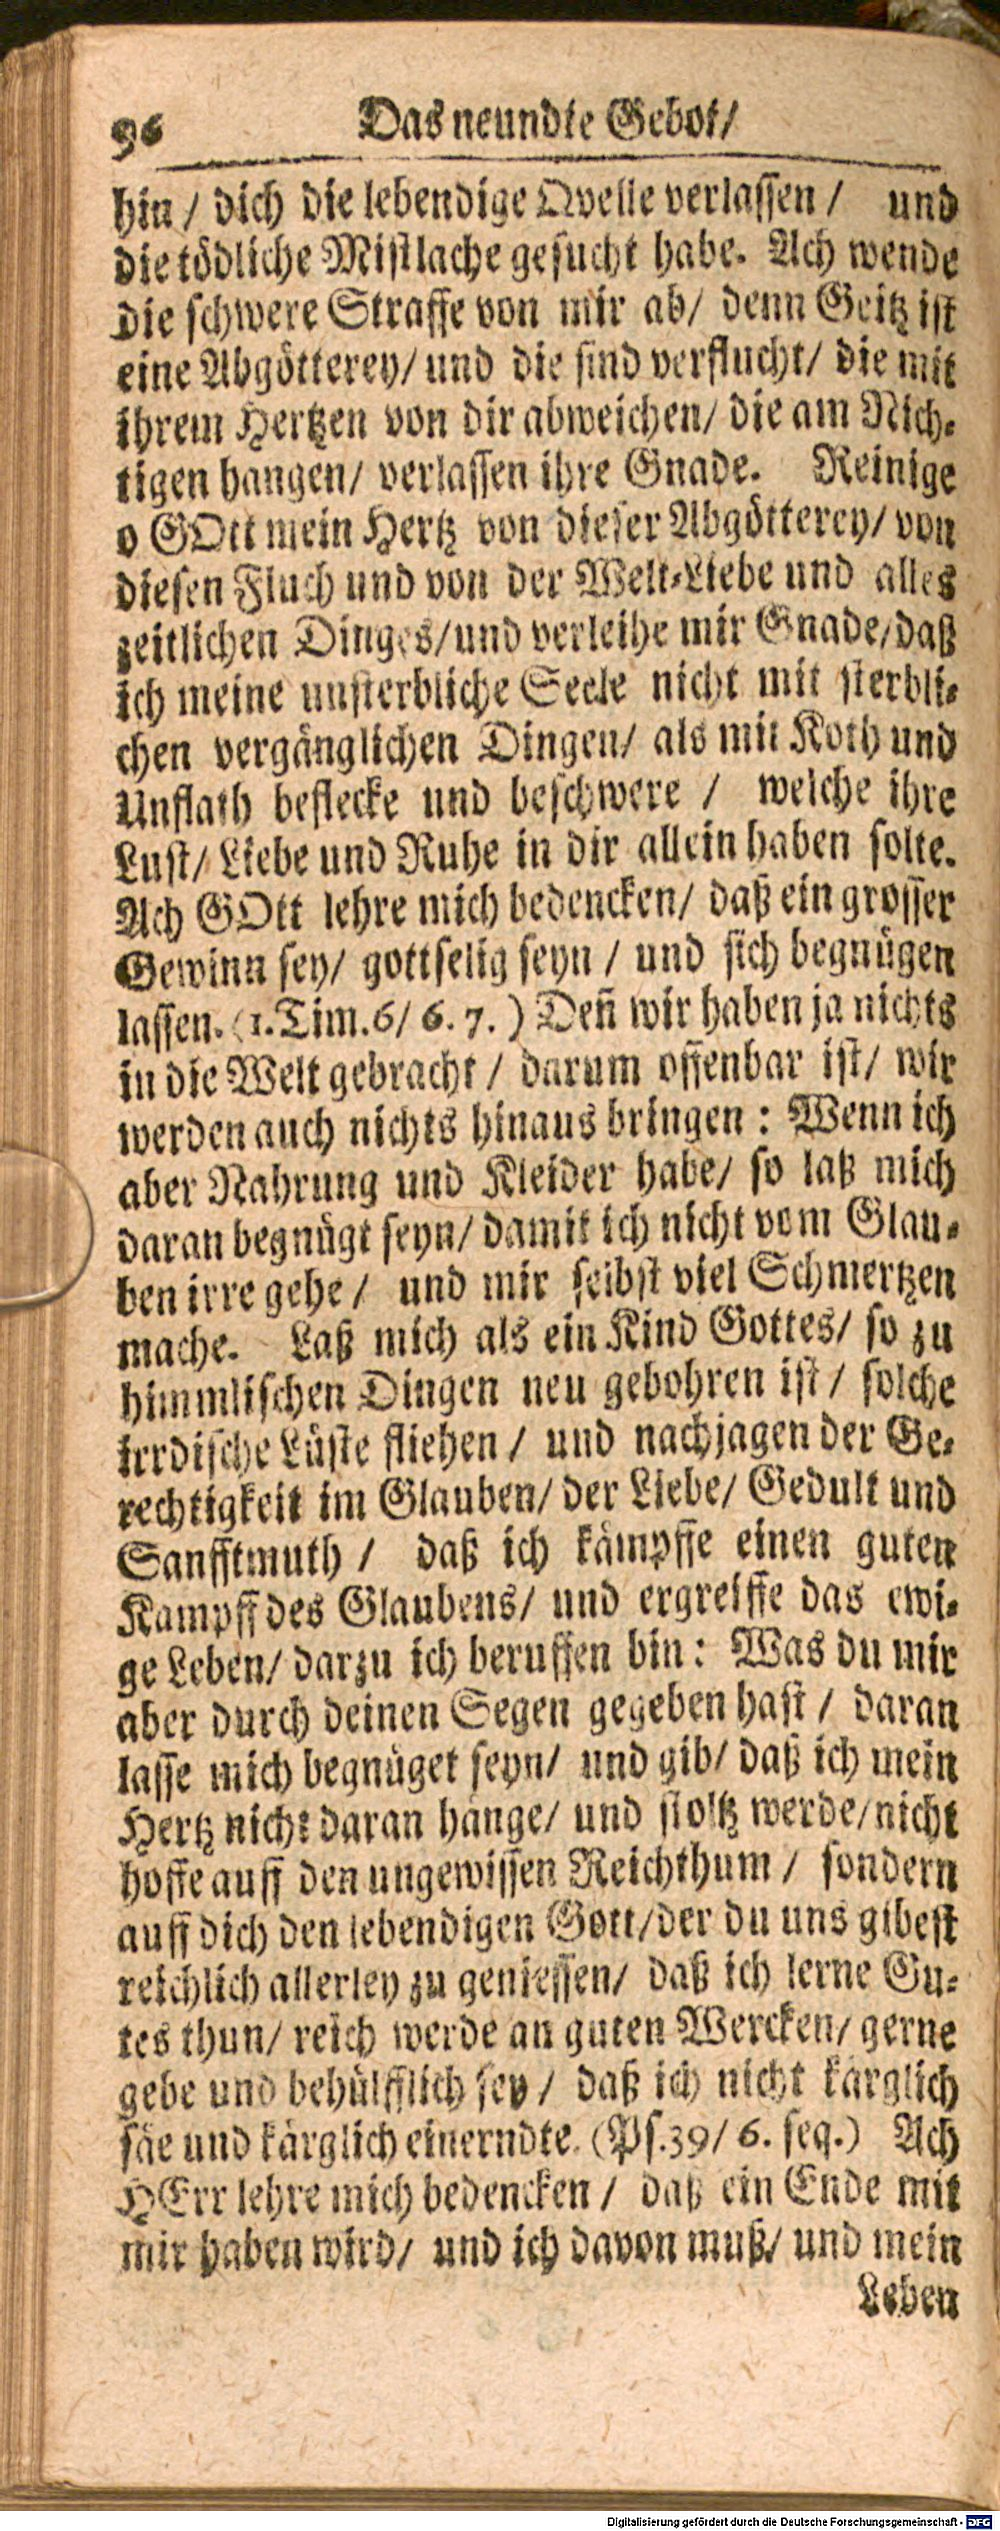 96 Das neundte Gebot/
hin / dich die lebendige Qvelle verlassen / und
die tödliche Mistlache gesucht habe. Ach wende
die schwere Straffe von mir ab/ denn Geitz ist
eine Abgötterey/ und die sind verflucht/ die mit
ihrem Hertzen von dir abweichen/ die am Nich-
tigen hangen/ verlassen ihre Gnade. Reinige
o GOtt mein Hertz von dieser Abgötterey/ von
diesen Fluch und von der Welt-Liebe und alles
zeitlichen Dinges/ und verleihe mir Gnade/ daß
ich meine unsterbliche Seele nicht mit sterbli-
chen vergänglichen Dingen/ als mit Koth und
Unflath beflecke und beschwere / welche ihre
Lust/ Liebe und Ruhe in dir allein haben solte.
Ach GOtt lehre mich bedencken/ daß ein grosser
Gewinn sey/ gottselig seyn / und sich begnügen
lassen. (1. Tim. 6/ 6. 7. ) Deñ wir haben ja nichts
in die Welt gebracht / darum offenbar ist/ wir
werden auch nichts hinaus bringen : Wenn ich
aber Nahrung und Kleider habe/ so laß mich
daran begnügt seyn/ damit ich nicht vom Glau-
ben irre gehe / und mir selbst viel Schmertzen
mache. Laß mich als ein Kind Gottes/ so zu
himmlischen Dingen neu gebohren ist / solche
irrdische Lüste fliehen / und nachjagen der Ge-
rechtigkeit im Glauben/ der Liebe/ Gedult und
Sanfftmuth / daß ich kämpffe einen guten
Kampff des Glaubens/ und ergreiffe das ewi-
ge Leben/ darzu ich beruffen bin : Was du mir
aber durch deinen Segen gegeben hast / daran
lasse mich begnüget seyn/ und gib/ daß ich mein
Hertz nicht daran hänge/ und stoltz werde/ nicht
hoffe auff den ungewissen Reichthum / sondern
auff dich den lebendigen Gott/ der du uns gibest
reichlich allerley zu geniessen/ daß ich lerne Gu-
tes thun/ reich werde an guten Wercken/ gerne
gebe und behülfflich sey / daß ich nicht kärglich
säe und kärglich einerndte. (Ps. 39/ 6. seq.) Ach
HErr lehre mich bedencken / daß ein Ende mit
mir haben wird/ und ich davon muß/ und mein
Leben
Digitalisierung gefördert durch die Deutsche Forschungsgemeinschaft - DFG